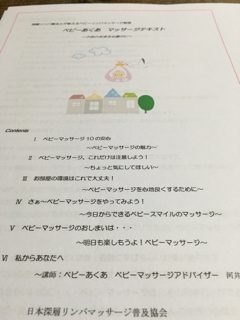 ベビーあくあ マッサージテキスト
Contents
Ⅰ ベビーマッサージ 10の安心
～ベビーマッサージの魅力～
2 ベビーマッサージ、これだけは注意しよう！
～ちょっと気にして欲しい～
Ⅲ お部屋の環境はこれで大丈夫！
～ベビーマッサージを心地良くするために～
Ⅳ さぁ～ベビーマッサージをやってみよう！
～今日からできるベビースマイルのマッサージ～
Ⅴ ベビーマッサージのおしまいは・・・
～明日も楽しもうよ！ベビーマッサージ～
Ⅵ 私からあなたへ
～講師：ベビーあくあ ベビーマッサージアドバイザー
日本深層リンパマッサージ普及協会